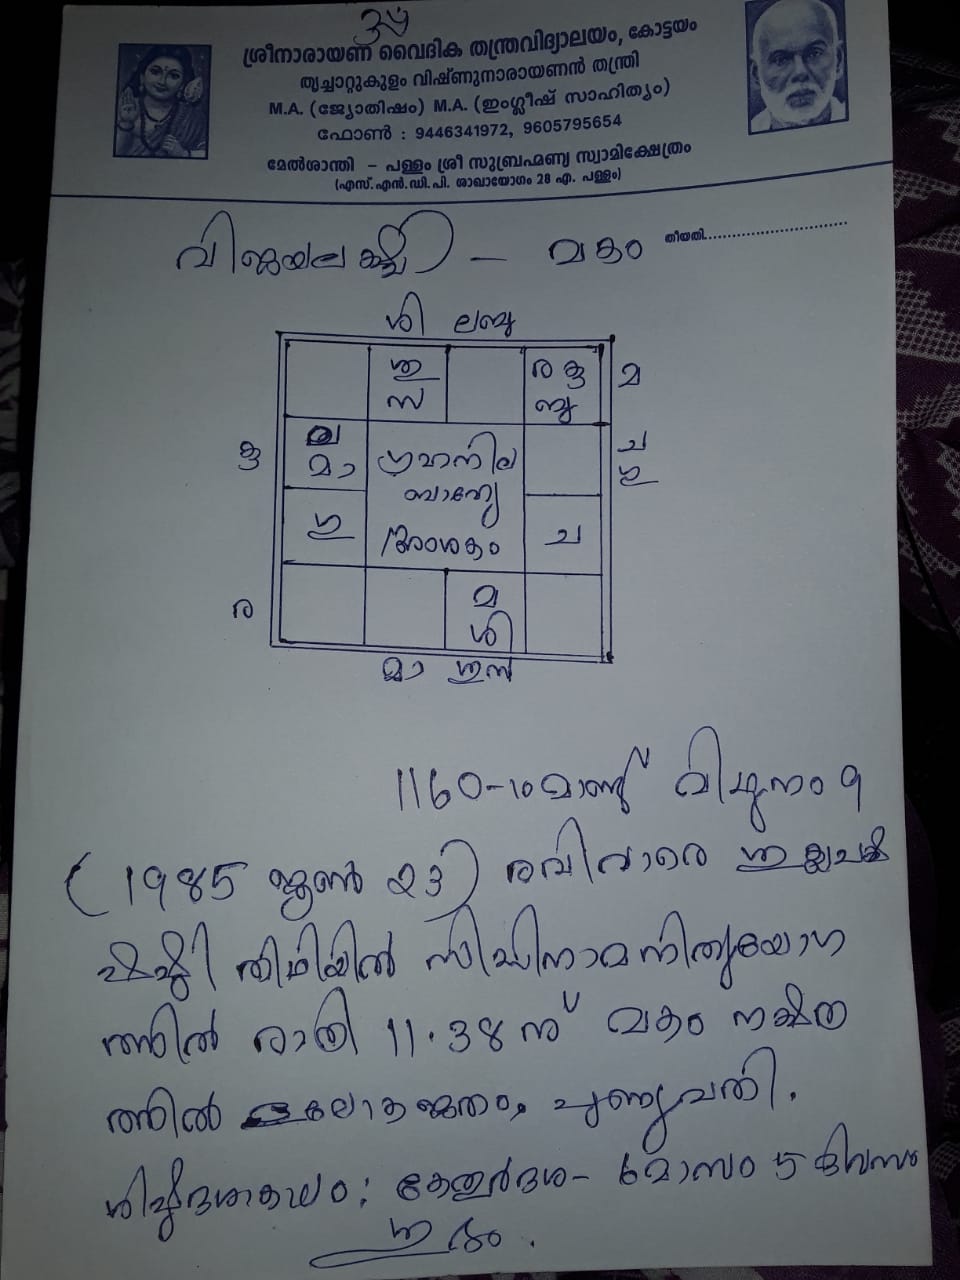 ശ്രീനാരായണ വൈദിക തന്ത്രവിദ്യാലയം, കോട്ടയം
തൃച്ചാറ്റുകുളം വിഷ്ണുനാരായണൻ തന്ത്രി
M.A. (ജ്യോതിഷം) M.A. (ഇംഗ്ലീഷ് സാഹിത്യം)
ഫോൺ : 9446341972, 9605795654
മേൽശാന്തി - പള്ളം ശ്രീ സുബ്രഹ്മണ്യ സ്വാമിക്ഷേത്രം
(എസ്.എൻ.ഡി.പി. ശാഖായോഗം 28 എ. പള്ളം)
തീയതി
വിജയലക്ഷ്മി - മകം
ശി ലബു
ശു ര കു മ
സ ബു
കു മാ ഗ്രഹനില ച
ഗു
ഗു അംശകം ച
ര മ
ശി
മാ
1160-ാമാണ്ട് മിഥുനം 9
(1985 ജൂൺ 23) രവിവാരെ
ഷഷ്ഠി തിഥിയിൽ സിദ്ധിനാമനിത്യയോഗ
ത്തിൽ രാത്രി 11.38 ന് മകം നക്ഷത്ര
ത്തിൽ
ശിഷ്ടദശാകാലം: കേതുർദശ- 6 മാസം 5 ദിവസം
ശുഭം.